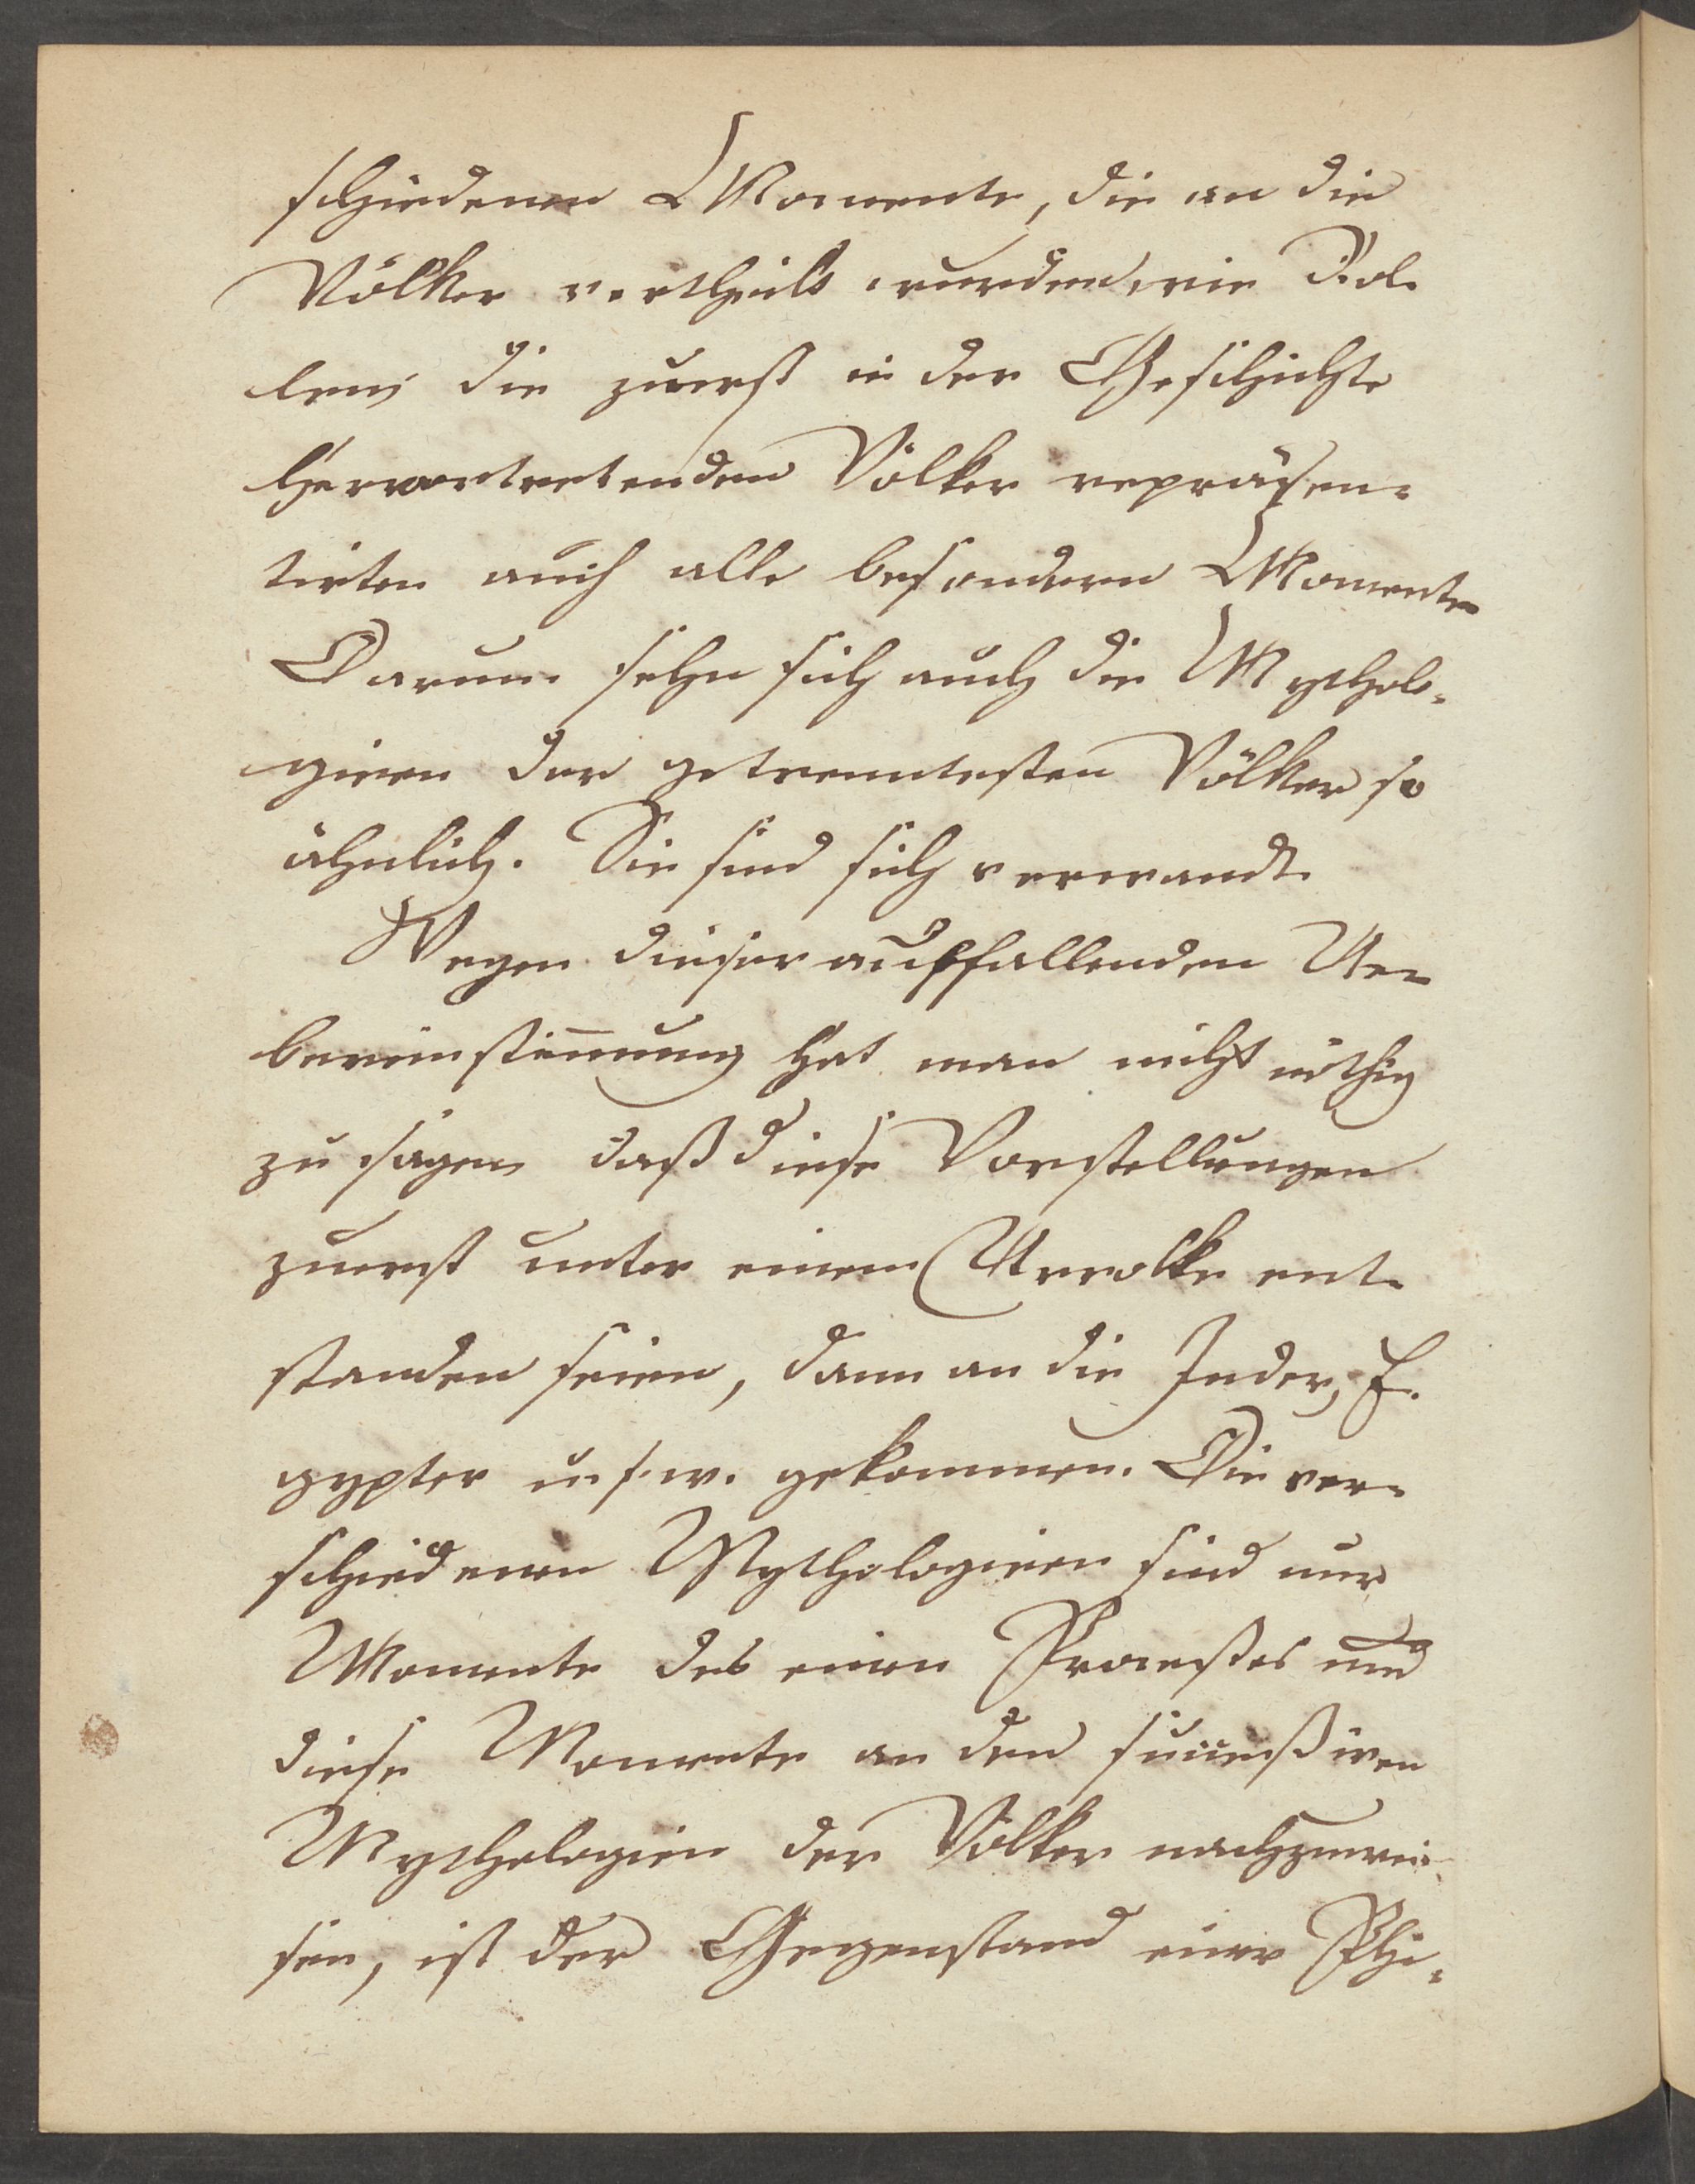 schiedenen Momente, die an die
Völker vertheilt wurden, wie Rol-
len; die zuerst in der Geschichte
hervortretenden Völker repräsen-
tirten auch alle besondern Momente
Darum sehn sich auch die Mytholo-
gieen der getrenntesten Völker so
ähnlich. Sie sind sich verwandt.
Wegen dieser auffallenden Ue-
bereinstim̄ung hat man nicht nöthig
zu sagen, daß diese Vorstellungen
zuerst unter einem Urvolke ent-
standen seien, dann an die Inder, E-
gypter u. s. w. gekommen. Die ver-
schiedenen Mythologieen sind nur
Momente des einen Proceßes und
diese Momente an den succeßiven
Mythologien der Völker nachzuwei-
sen, ist der Gegenstand einer Phi-